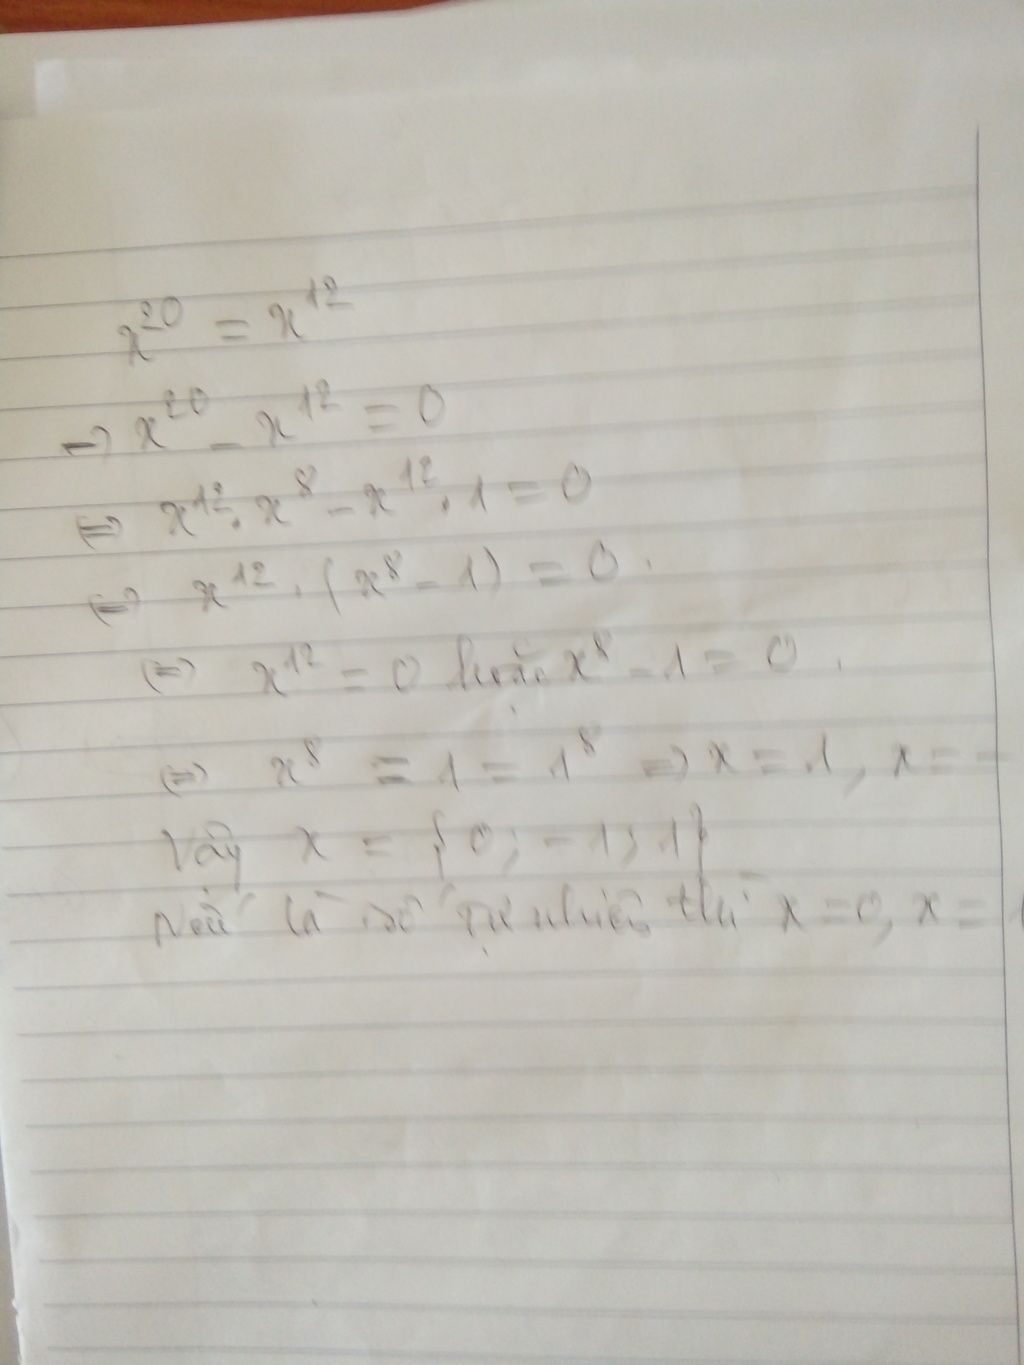 x²⁰ = x¹²
=> x²⁰ - x¹² = 0
<=> x¹² . x⁸ - x¹² . 1 = 0
<=> x¹² . (x⁸ - 1) = 0 .
<=> x¹² = 0 hoặc x⁸ - 1 = 0 .
<=> x⁸ = 1 = 1⁸ => x = 1, x = -
Vậy x = {0; -1; 1}
Nếu là số tự nhiên thì x = 0, x = 1